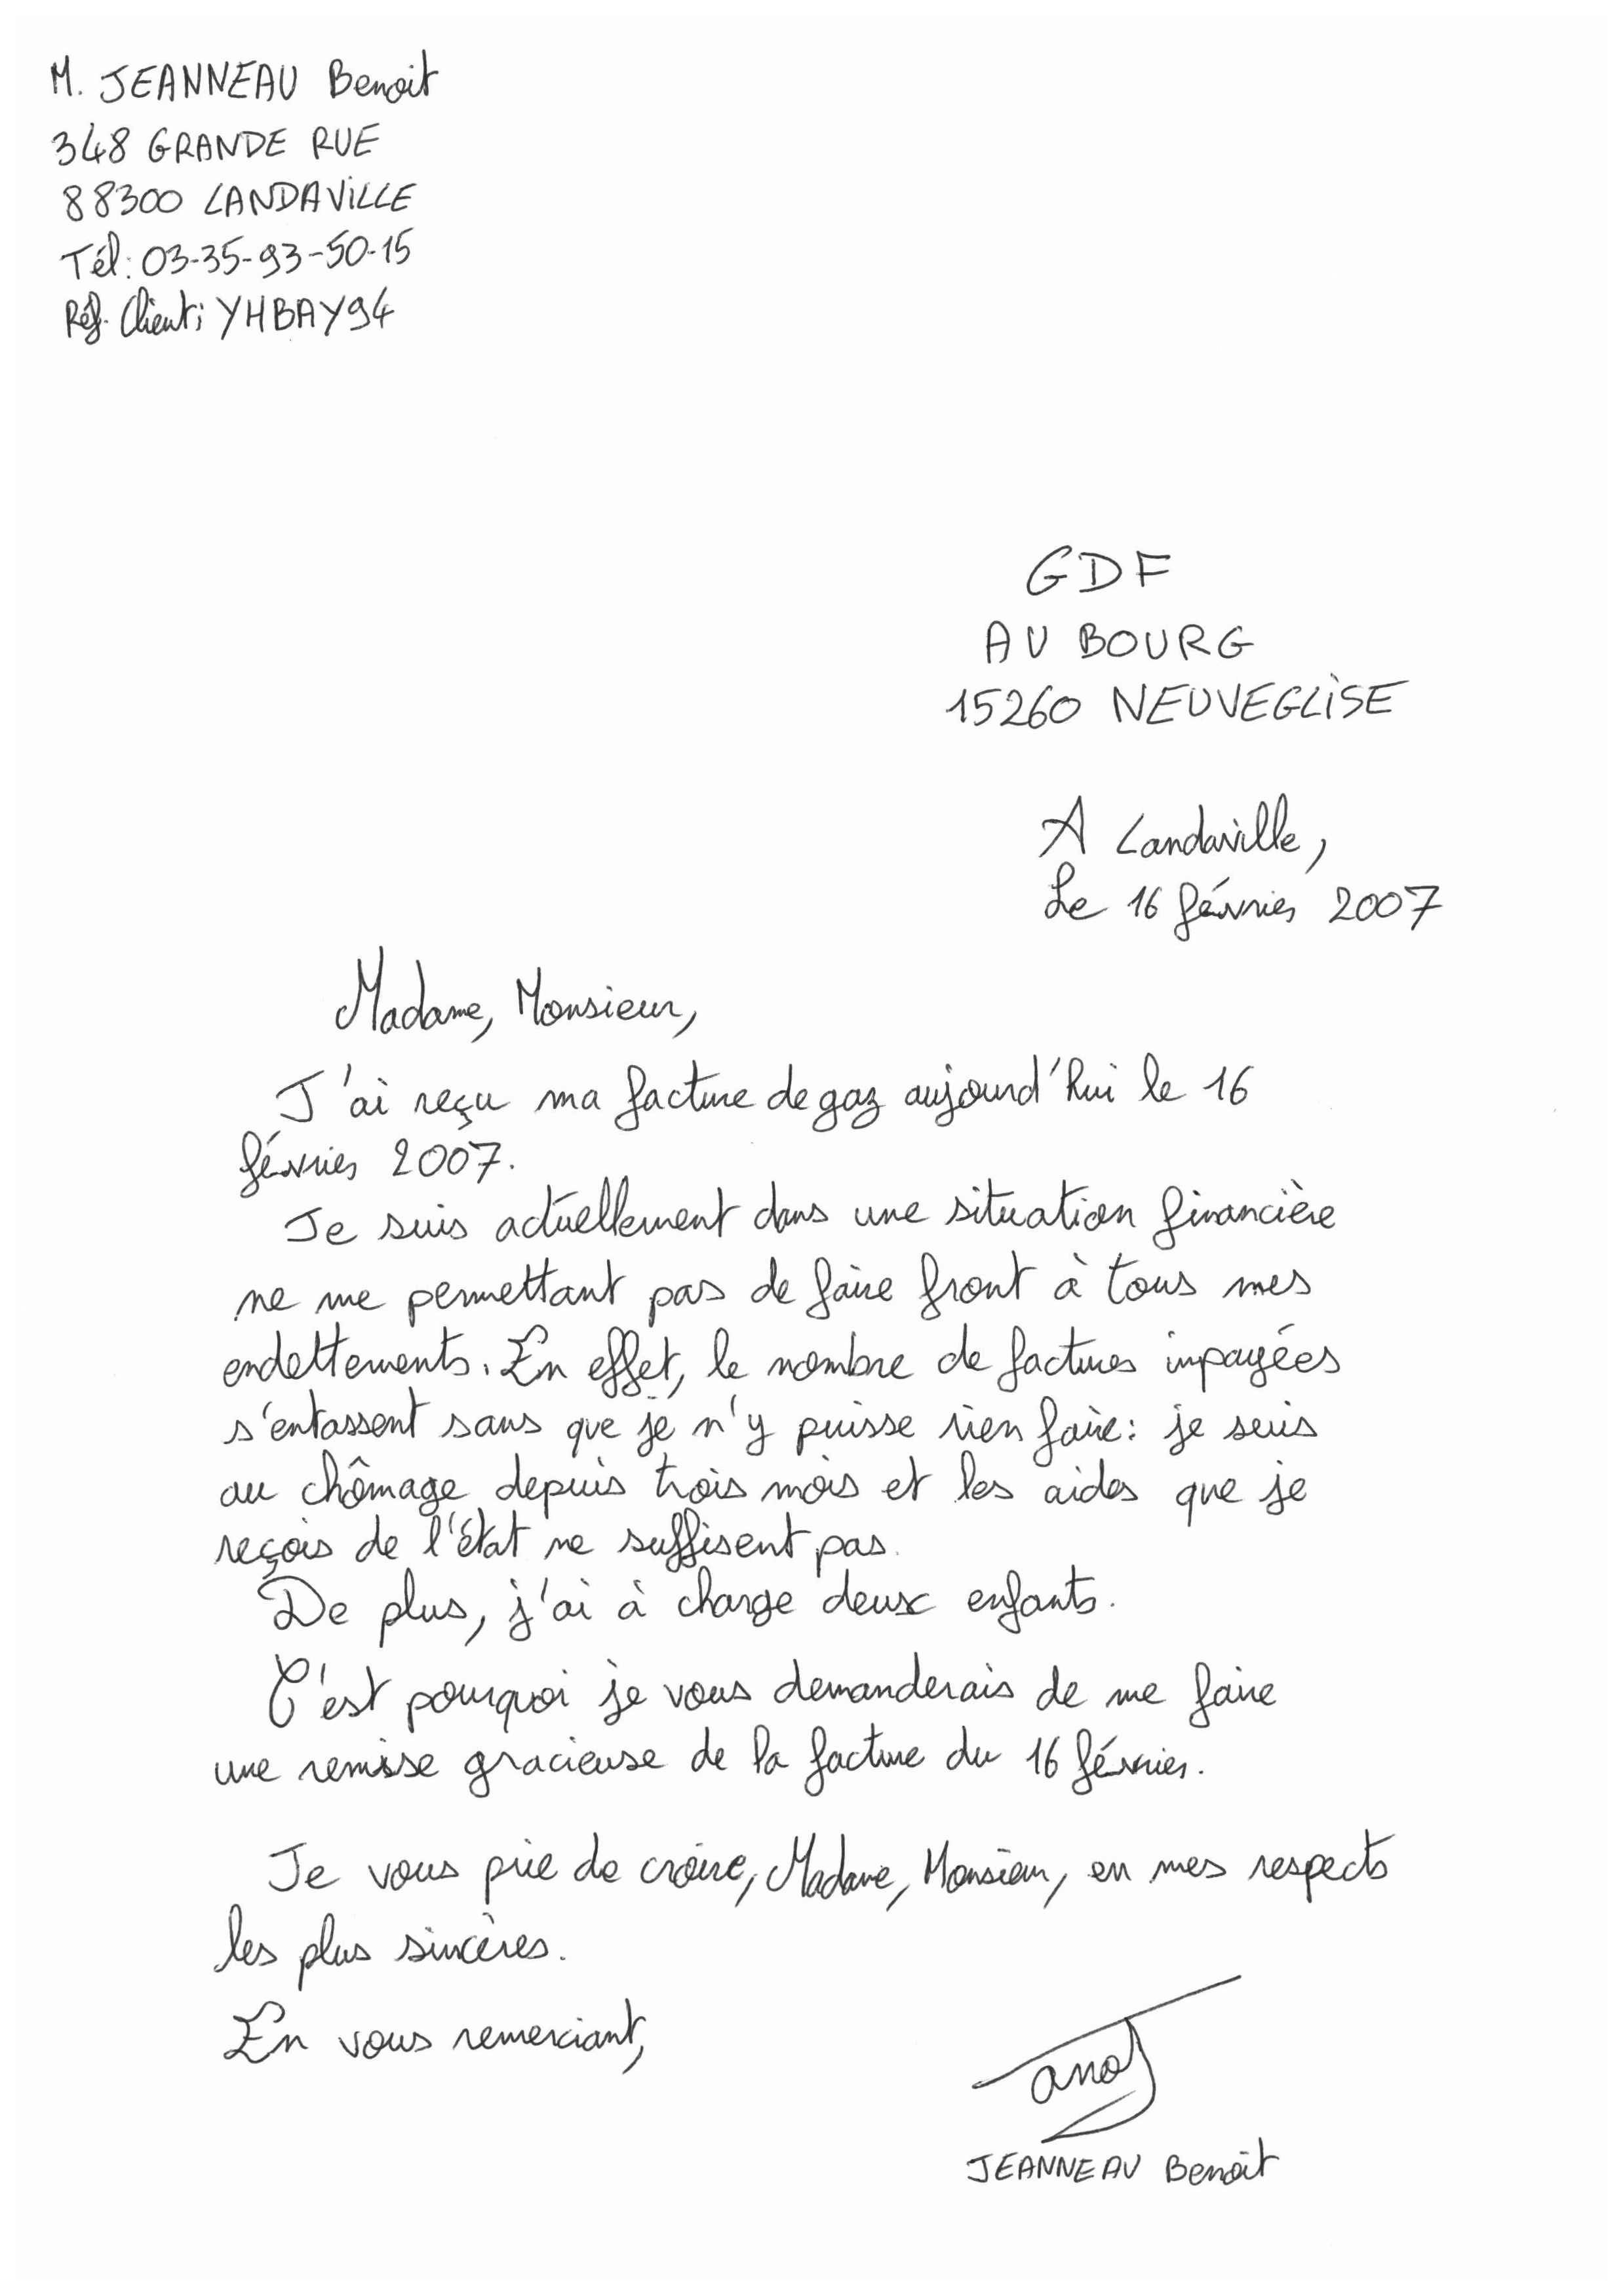 M. JEANNEAU Benoit
348 GRANDE RUE
88300 LANDAVILLE
Tél: 03-35-93-50-15
Réf. Client: YHBAY94
GDF
AU BOURG
15260 NEUVEGLISE
A Landaville,
Le 16 février 2007
Madame, Monsieur,
J'ai reçu ma facture de gaz aujourd'hui le 16
février 2007.
Je suis actuellement dans une situation financière
ne me permettant pas de faire front à tous mes
endettements. En effet, le nombre de factures impayées
s'entassent sans que je n'y puisse rien faire: je suis
au chômage depuis trois mois et les aides que je
reçois de l'état ne suffisent pas.
De plus, j'ai à charge deux enfants.
C'est pourquoi je vous demanderais de me faire
une remise gracieuse de la facture du 16 février.
Je vous prie de croire, Madame, Monsieur, en mes respects
les plus sincères.
En vous remerciant,
JEANNEAU Benoit